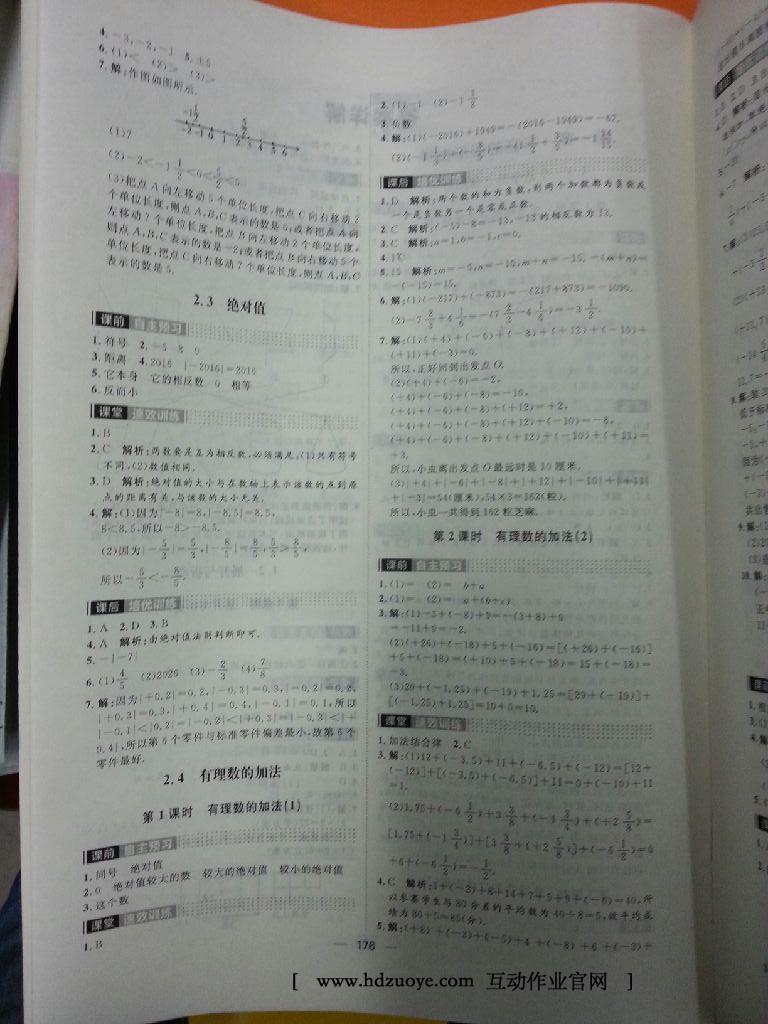 4. -3,-2,-1 5. ±5
6. (1)< (2)> (3)>
7. 解:作图如图所示.
-2 -1 0 1 2 3 4 5 6
(1)7
(3)把点A向左移动5个单位长度,把点C向右移动2
个单位长度,则点A,B,C表示的数是0;或者把点A向
左移动7个单位长度,把点B向左移动2个单位长度,
则点A,B,C表示的数是-2;或者把点B向右移动5个
单位长度,把点C向右移动7个单位长度,则点A,B,C
表示的数是5.
2.3 绝对值
课前 自主预习
1. 符号 2. -5 8 0
3. 距离 4. 2016 |-2016|=2016
5. 它本身 它的相反数 0 相等
6. 反而小
课堂 速效训练
1. B
2. C 解析:两数要是互为相反数,必须满足:(1)只有符号
不同,(2)数值相同.
3. D 解析:绝对值的大小与在数轴上表示该数的点到原
点的距离有关,与该数的大小无关.
4. 解:(1)因为|-8|=8,|-8.5|=8.5,
8<8.5,所以-8>-8.5.
(2)因为|-5/3|=5/3,|-8/5|=8/5,5/3>8/5,
所以-5/3<-8/5.
课后 培优训练
1. A 2. D 3. B
4. A 解析:由绝对值法则判断即可.
5. -|-7|
6. (1)4/5 (2)2026 (3)-2/3 (4)7/8
7. 解:因为|+0.2|=0.2,|-0.3|=0.3,|-0.2|=0.2,
|+0.3|=0.3,|+0.4|=0.4,|-0.1|=0.1,所以
|-0.1|<|0.2|=|-0.2|<|+0.3|=|-0.3|<|+
0.4|,所以第6个零件与标准零件偏差最小,故第6个
零件最好.
2.4 有理数的加法
第1课时 有理数的加法(1)
课前 自主预习
1. 同号 绝对值
2. 0 绝对值较大的数 较大的绝对值 较小的绝对值
3. 这个数
课堂 速效训练
1. B
2. (1)-1 (2)-1 1/2
3. 负数
4. 解:(1)(-2016)+1949=-(2016-1949)=-67.
课后 培优训练
1. D 解析:两个数的和为负数,则两个加数都为负数或
一个是负数另一个是零或正数.
2. C 解析:(-5)-8=-13,-13的相反数为13.
3. C 解析:a=1,b=-1,c=0.
4. 1℃
5. 15 解析:m=-5,n=-10,m+n=-15,-(m+n)=
-(-15)=15.
6. 解:(1)(-217)+(-873)=-(217+873)=-1090.
7. 解:(1)(+4)+(-6)+(-8)+(+12)+(-10)+
(+11)+(-3)=0.
所以,正好回到出发点O.
(2)(+4)+(-6)=-2,
(+4)+(-6)+(-8)=-10,
(+4)+(-6)+(-8)+(+12)=+2,
(+4)+(-6)+(-8)+(+12)+(-10)=-8,
(+4)+(-6)+(-8)+(+12)+(-10)+(+11)=
+3.
所以,小虫离出发点O最远时是10厘米.
(3)|+4|+|-6|+|-8|+|+12|+|-10|+|+11|
+|-3|=54(厘米),54×3=162(粒).
所以,小虫一共得到162粒芝麻.
第2课时 有理数的加法(2)
课前 自主预习
1. (1)= (2)= b+a
2. (1)= (2)= a+(b+c)
3. 解:(1)-3+(-8)+9=-(3+8)+9
=-11+9=-2.
(2)(+26)+(-18)+5+(-16)=[(+26)+(-16)]
+5+(-18)=(+10)+5+(-18)=15+(-18)=
-3.
(3)29+(-1.25)+(-19)+1.25=[29+(-19)]+
[(-1.25)+1.25]=10+0=10.
课堂 速效训练
1. 加法结合律 2. C
3. 解:(1)12+(-3.5)+11+(-6.5)+(-12)=[12+
(-12)]+[(-3.5)+(-6.5)]+11=0+(-10)+11
=1.
(2)1.75+(-6 1/2)+3 3/8+(-1 3/4)+(+2 5/8)=
[1.75+(-1 3/4)]+[3 3/8+(+2 5/8)]+(-6 1/2)=0
+6+(-6 1/2)=-1/2.
4. C 解析:5+(-2)+8+14+7+5+9+(-6)=40,所
以参赛学生与80分差的平均数为40÷8=5,故平均成
绩为80+5=85(分).
5. 解:(+8)+(-3)+(-5)+4+(-8)+6+(-3)+
178
[ www.hdzuoye.com 互动作业官网 ]